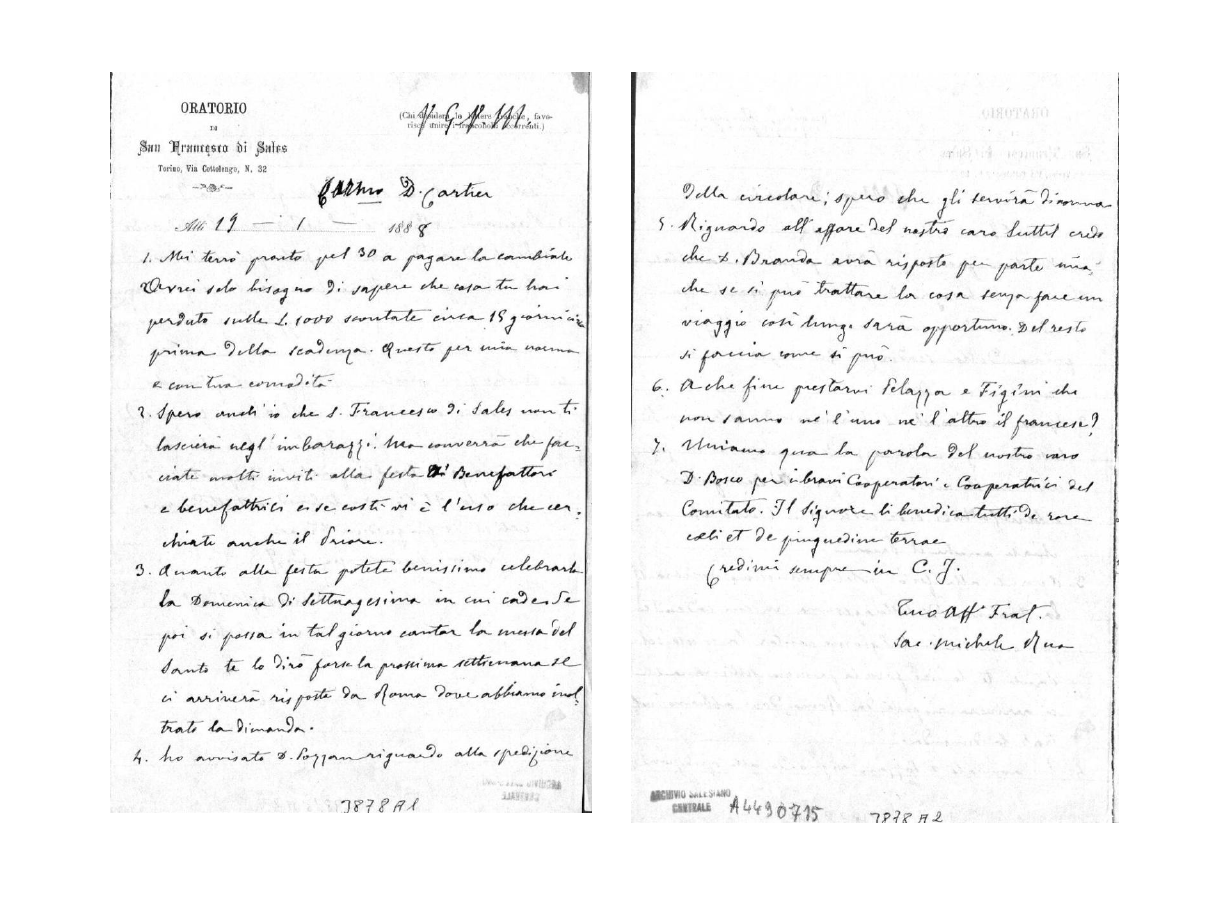 ORATORIO
DI
San Francesco di Sales
Torino, Via Cottolengo, N. 32
(Chi desidera lo lettere franche, favo-
risca unire i francobolli occorrenti.)
V. G. M.
Car.mo D. Cartier
Addì 19 — 1 — 1888
1. Mi terrò pronto pel 30 a pagare la cambiale
Avrei solo bisogno di sapere che cosa tu hai
perduto sulle L. 1000 scontate circa 15 giorni
prima della scadenza. Questo per mia norma
e con tua comodità.
2. Spero anch'io che S. Francesco di Sales non ti
lascierà negl'imbarazzi. Ma converrà che fac-
ciate molti inviti alla festa di Benefattori
e benefattrici e se costì vi è l'uso che cer-
chiate anche il Priore.
3. Quanto alla festa potete benissimo celebrarla
la Domenica di Settuagesima in cui cade. Se
poi si possa in tal giorno cantar la messa del
Santo te lo dirò forse la prossima settimana se
ci arriverà risposta da Roma dove abbiamo inol-
trato la dimanda.
4. ho avvisato D. Lazzero riguardo alla spedizione
3878 A1
della circolare; spero che gli servirà di norma
5. Riguardo all'affare del nostro caro credo
che D. Branda avrà risposto per parte mia,
che se si può trattare la cosa senza fare un
viaggio così lungo sarà opportuno. Del resto
si faccia come si può.
6. A che fine prestarvi Pelazza e Figini che
non sanno nè l'uno nè l'altro il francese?
7. Uniamo qua la parola del nostro caro
D. Bosco per i bravi Cooperatori e Cooperatrici del
Comitato. Il Signore li benedica tutti de rore
cœli et de pinguedine terrae
Credimi sempre in C. J.
Tuo Aff. Frat.
Sac. Michele Rua
ARCHIVIO SALESIANO
CENTRALE
A4490715
3878 A2